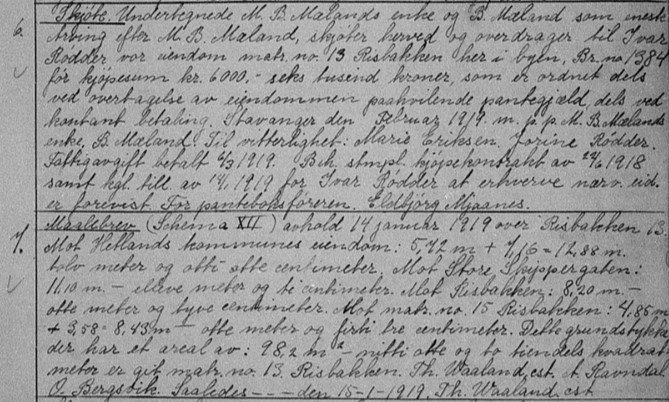 6. Skjøte. Undertegnede M. B. Mælands enke og B. Mæland som enest
Arving efter M. B. Mæland, skjøter herved og overdrager til Ivar
Rødder vor eiendom matr. no. 13 Risbakken her i byen, Br. no 1384
for kjøpesum kr. 6000,- seks tusend kroner, som er ordnet dels
ved overtagelse av eiendommen paahvilende pantegjæld, dels ved
kontant betaling. Stavanger den Februar 1919. m. p. p. M. B. Mælands
enke, B. Mæland. Til vitterlighet: Marie Eriksen. Jorine Rødder.
Fattigavgift betalt 4/3 1919. Beh. stmpl. kjøpekontrakt av 24/6 1918
samt kgl. till. av 1919 for Ivar Rødder at erhverve nærv. eid.
er forevist. For pantebokføreren. Eldbjørg Mjaanes.
7. Maalebrev (Schema XII) avhold 14 januar 1919 over Risbakken 13.
Mot Hetlands kommunes eiendom: 5,72 m + 7,16 = 12,88 m.
tolv meter og otti otte centimeter. Mot Store Skippergaten:
11,10 m. - elleve meter og ti centimeter. Mot Risbakken: 8,20 m -
otte meter og tyve centimeter. Mot matr. no. 15 Risbakken: 4,85 m
+ 3,58 = 8,43 m - otte meter og firti tre centimeter. Dette grundstykke
der har et areal av: 98,2 m² - nitti otte og to tiendels kvadrat
meter er git matr. no. 13. Risbakken. Th. Waaland, cst. A Ravndal
O. Bergsvik. Saaledes - - - den 15-1-1919. Th. Waaland, cst.